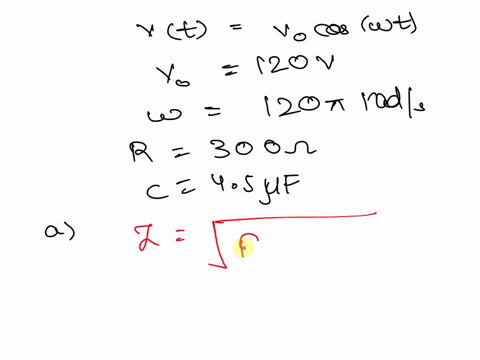 v(t) = v₀ cos(ωt)
V₀ = 120V
ω = 120π rad/s
R = 300Ω
C = 4.5μF
a) Z = √